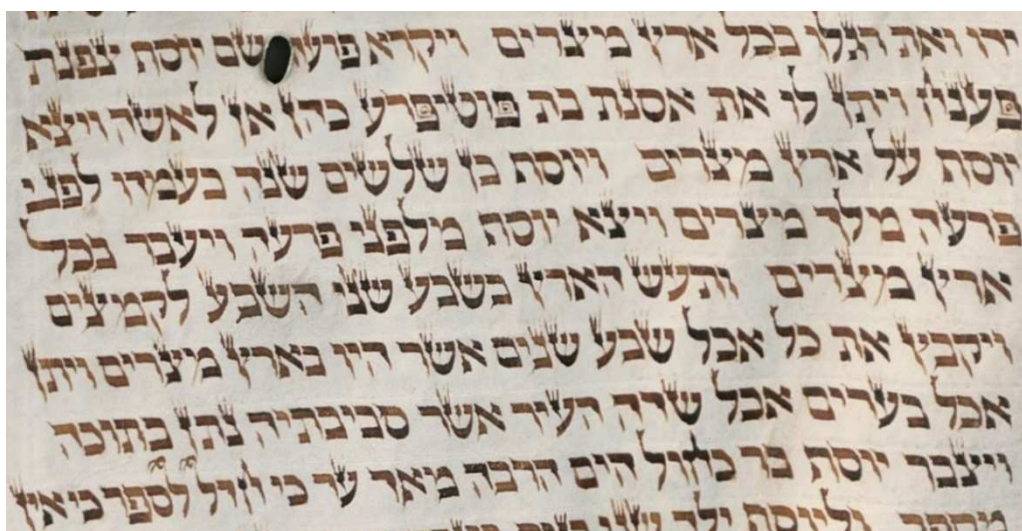 ידו ואת רגלו בכל ארץ מצרים ויקרא פרעה שם יוסף צפנת
פענח ויתן לו את אסנת בת פוטיפרע כהן אן לאשה ויצא
יוסף על ארץ מצרים ויוסף בן שלשים שנה בעמדו לפני
פרעה מלך מצרים ויצא יוסף מלפני פרעה ויעבר בכל
ארץ מצרים ותעש הארץ בשבע שני השבע לקמצים
ויקבץ את כל אכל שבע שנים אשר היו בארץ מצרים ויתן
אכל בערים אכל שדה העיר אשר סביבתיה נתן בתוכה
ויצבר יוסף בר כחול הים הרבה מאד עד כי חדל לספר כי אין
וליוסף ילד שני בנים